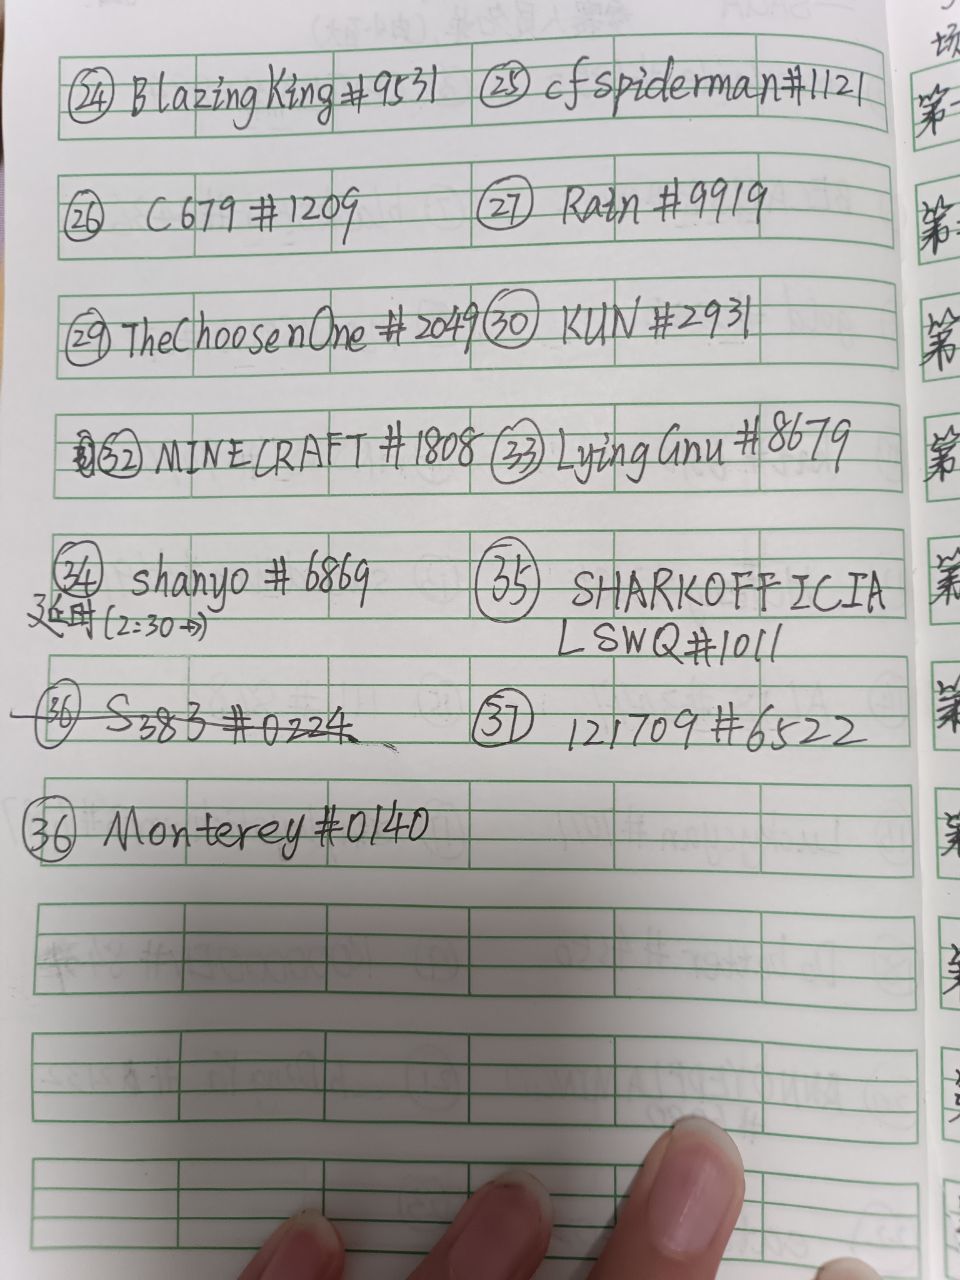 ㉔ BlazingKing#9531 ㉕ cfspiderman#1121
㉖ C679#1209 ㉗ Rain#9919
㉙ TheChoosenOne#2049 ㉚ KUN#2931
㉜ MINECRAFT#1808 ㉝ LyingGnu#8679
㉞ shanyo#6869 ㉟ SHARKOFFICIA
延时(2:30→) LSWQ#1011
㊱ S383#0224 ㊲ 121709#6522
㊱ Monterey#0140
场
第一
第
第
第
第
第